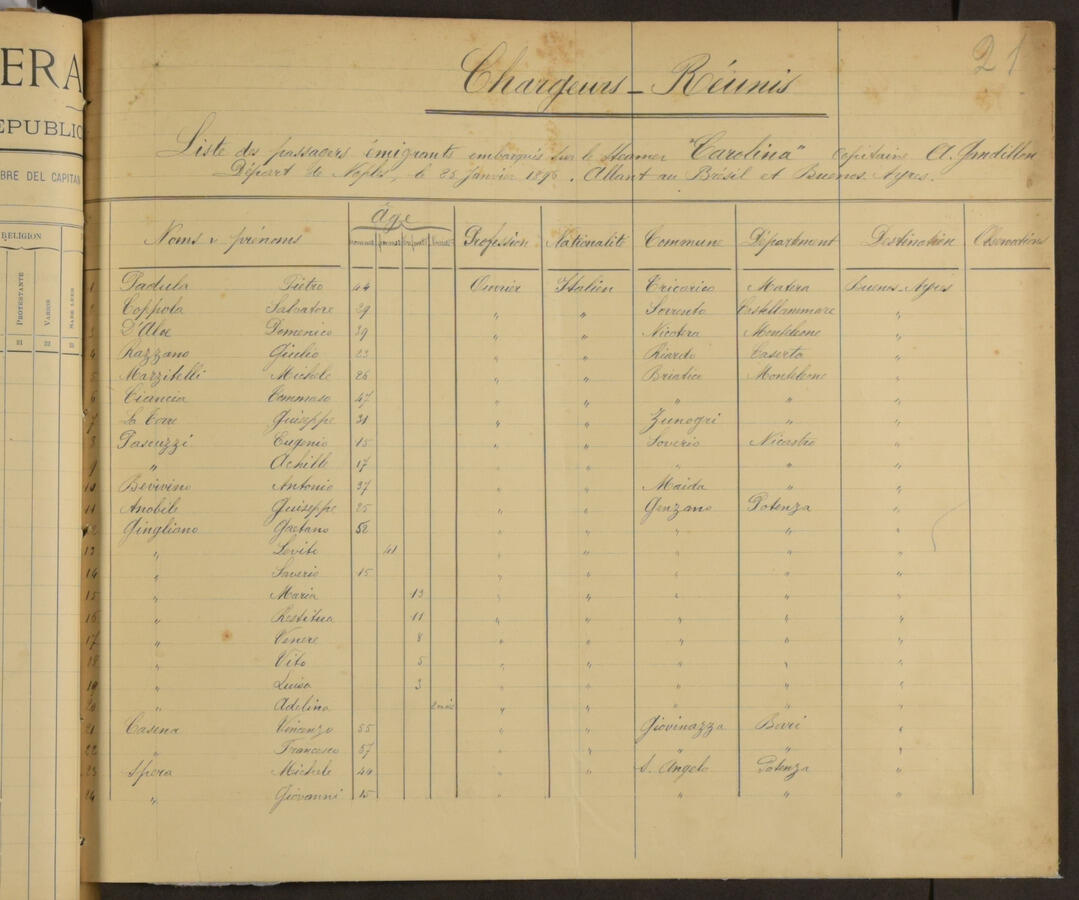 ERA
EPUBLIC
BRE DEL CAPITAN
RELIGION
PROTESTANTE
VARIOS
21 22
21
Chargeurs-Réunis
Liste des passagers émigrants embarqués sur le steamer "Carolina" Capitaine A.
Départ de Naples, le 25 Janvier 1896. Allant au Brésil et Buenos-Ayres.
Âge
Noms & prénoms hommes femmes Profession Nationalité Commune Départment Destination Observations
1 Padula Pietro 44 Ouvrier Italien Tricarico Matera Buenos-Ayres
2 Coppola Salvatore 29 " " Sorrento Castellammare "
3 D'Aloe Domenico 39 " " Nicotera Monteleone "
4 Razzano Giulio 23 " " Riardo Caserta "
5 Mazzitelli Michele 26 " " Briatico Monteleone "
6 Ciancia Tommaso 47 " " " " "
7 La Torre Guiseppe 31 " " Zunogri " "
8 Pascuzzi Eugenio 15 " " Soverio Nicastro "
9 " Achille 17 " " " " "
10 Bevivino Antonio 37 " " Maida " "
11 Anobile Guiseppe 25 " " Genzano Potenza "
12 Gingliano Gaetano 52 " " " " "
13 " Levito 41 " " " " "
14 " Saverio 15 " " " " "
15 " Maria 13 " " " " "
16 " Restitua 11 " " " " "
17 " Venere 8 " " " " "
18 " Vito 5 " " " " "
19 " Luisa 3 " " " " "
20 " Adelina 2 mois " " " " "
21 Casena Vincenzo 55 " " Giovinazza Bari "
22 " Francesco 57 " " " " "
23 Spera Michele 44 " " S. Angelo Potenza "
24 " Giovanni 15 " " " " "